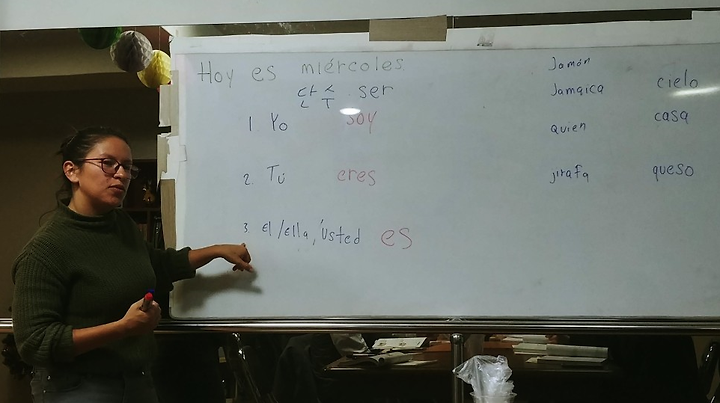 Hoy es miércoles
단수 ser
1. Yo soy
2. Tú eres
3. El/Ella, Usted es
Jamón
Jamaica
quien
jirafa
cielo
casa
queso